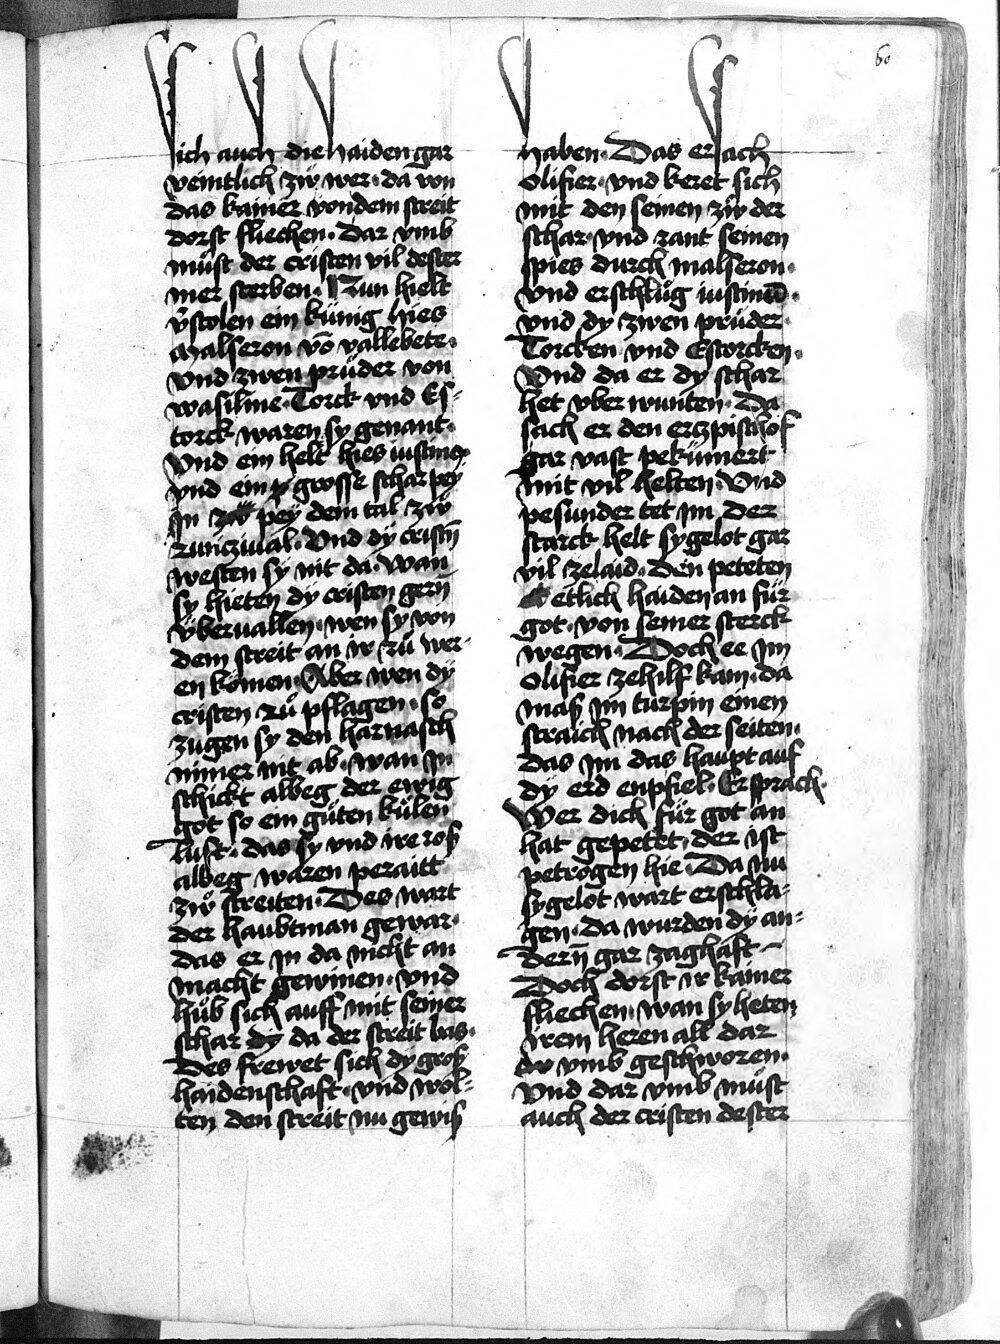 60
sich auch die haiden gar
veintlich zw wer · da von
das kainer von dem streit
dorst fliechen · Dar vmb
müst der cristen vil dester
mer sterben · Nun hielt
vͤstolen ein künig hies
malseron võ vallebete ·
vnd zwen prüder von
wasiline · Torck vnd Es-
torck waren sy genant ·
vnd ein helt hies iustines
vnd ein grosse schar pey
in pey dem tal zw
runcziual · Vnd dy cristñ
westen sy nit da · wan
sy hieten dy cristen gerñ
vberuallen · wen sy von
dem streit an ir zů wer-
en kömen · Aber wen dy
cristen rů pflagen · so
zugen sy den harnasch
nimer nit ab · wan in
schickt albeg der ewig
got so ein güten külen
luft · das sy vnd ire roß
albeg waren peraitt
zw streiten · Des wart
der haubtman gewar ·
das er in da nicht an
macht gewinen · vnd
hůb sich auff mit seiner
schar dy da der streit bas ·
Des frewet sich dy groß
haidenschaft · vnd wol-
ten den streit nu gewiß
haben · Das ersach
Olifier · vnd keret sich
mit den seinen zw der
schar · vnd rant seinen
spies durch malseron ·
vnd erschlůg iustinen ·
vnd dy zwen prüder
Torcken vnd Estorcken ·
Vnd da er dy schar
het vber wunten · Da
sach er den erczpischof
gar vast pekümert
mit vil helten · Vnd
pesunder tet im Der
starck helt sygelot gar
vil zelaid · Den peteten
etlich haiden an für
got · von seiner sterck
wegen · Doch ee im
Olifier zehilf kam · da
maß im turpin einen
straich nach der seiten ·
das im das haupt auf
dy erd enpfiel · Er sprach ·
Wer dich für got an
hat gepetet · der ist
petrogen hie · Da nu
sygelot wart erschla-
gen · Da wurden dy an-
derñ gar zaghaft
Doch dorst ir kainer
fliechen · wan sy heten
irem heren all dar
vmb geschworen ·
Vnd dar vmb müst
auch der cristen dester